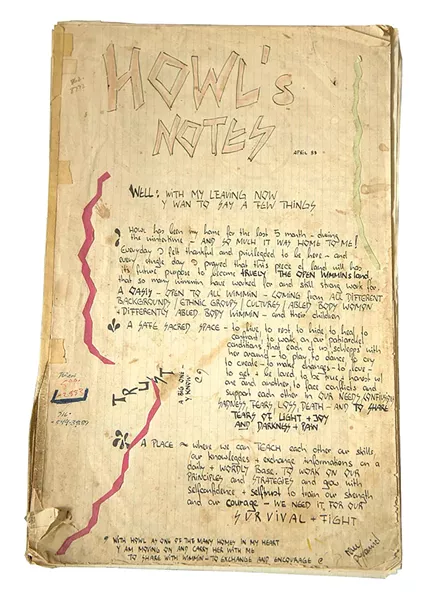 HOWL'S
NOTES
APRIL 88
WELL: WITH MY LEAVING NOW
Y WAN TO SAY A FEW THINGS
HOWL HAS BEEN MY HOME FOR THE LAST 5 MONTH - DURING
THE WINTERTIME - AND SO MUCH IT WAS HOME TO ME!
Everyday I felt thankful and priviledged to be here - and
every single day I prayed that this piece of land will has
its future purpose to become TRUELY THE OPEN WIMMINS land,
that so many wimmin have worked for and still strong work for.
A OASIS - OPEN TO ALL WIMMIN - COMING from ALL DIFFERENT
BACKGROUND / ETHNIC GROUPS / CULTURES / ABLED BODY WOMON
+ DIFFERENTLY ABLED BODY WIMMIN - and their children
A SAFE SACRED SPACE - to live, to rest, to hide, to heal, to
confront, to work on our patriarchal
conditions, that each of us schlepps with
her around - to play, to dance, to cry
to create - to make changes - to love -
to get + be loved, to be true + honest w/
one and another, to face conflicts and
support each other in OUR NEEDS, CONFUSION
SADNESS, TEARS, LOSS, DEATH - AND TO SHARE
TEARS OF LIGHT + JOY
AND DARKNESS + PAIN
TRUST
A PLACE ~ where we can TEACH each other our skills,
our knowlegdes + exchange informations on a
daily + WORDLY Base. TO WORK ON OUR
PRINCIPLES and STRATEGIES and grow with
selfconfidence + selftrust to train our strength
and our courage - WE NEED IT FOR OUR
SURVIVAL + FIGHT
WITH HOWL AS ONE OF THE MANY HOMES IN MY HEART
Y AM MOVING ON AND CARRY HER WITH ME
TO SHARE WITH WIMMIN - TO EXCHANGE AND ENCOURAGE